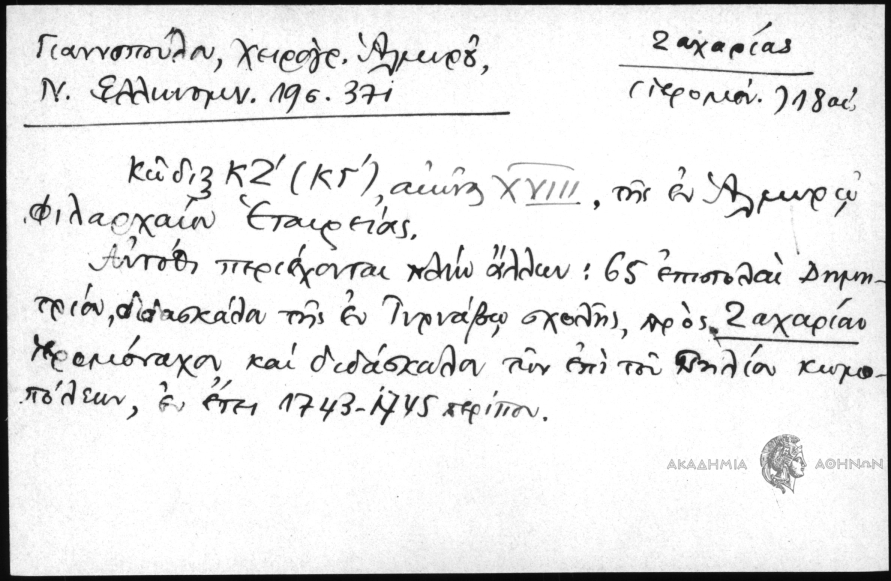 Γιαννοπούλου, χειρόγρ. Ἁλμυροῦ,
Ν. Ἑλληνομν. 19 σ. 371
Ζαχαρίας
(ἱερομόν.) 18 αἰ.
Κῶδιξ ΚΖ' (ΚΓ'), αἰῶνος XVIII, τῆς ἐν Ἁλμυρῷ
Φιλαρχαίου Ἑταιρείας.
Αὐτόθι περιέχονται πλὴν ἄλλων: 65 ἐπιστολαὶ Δημη-
τρίου, διδασκάλου τῆς ἐν Τυρνάβῳ σχολῆς, πρὸς Ζαχαρίαν
ἱερομόναχον καὶ διδάσκαλον τῶν ἐπὶ τοῦ Πηλίου κωμο-
πόλεων, ἐν ἔτει 1743-1745 περίπου.
ΑΚΑΔΗΜΙΑ ΑΘΗΝΩΝ